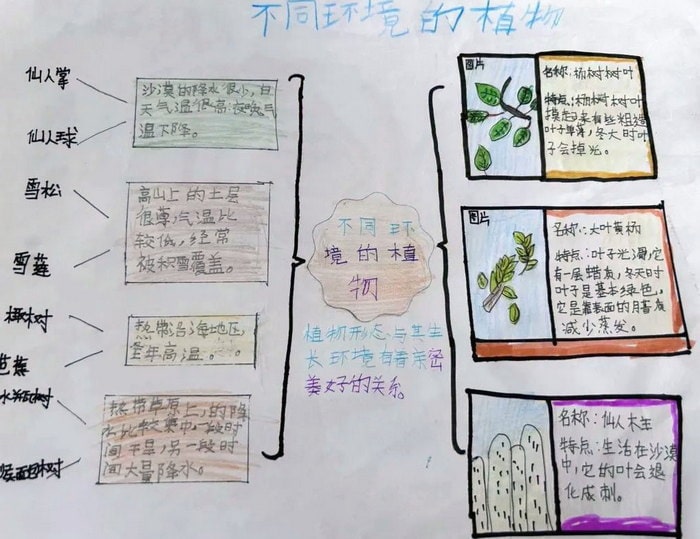 不同环境的植物
仙人掌
仙人球
沙漠的降水很少,白
天气温很高,夜晚气
温下降。
雪松
雪莲
高山上的土层
很薄,气温比
较低,经常
被积雪覆盖。
椰树
芭蕉
热带沿海地区,
全年高温。
水瓶树
猴面包树
热带草原上,的降
水比较集中,一段时
间干旱,另一段时
间大量降水。
不同环
境的植
物
植物形态与其生
长环境有着亲密
美好的关系。
图片
名称:杨树树叶
特点:杨树树叶
摸起来有些粗糙
叶子单薄,冬天时叶
子会掉光。
图片
名称:大叶黄杨
特点:叶子光滑,它
有一层蜡质,冬天时
叶子是基本绿色,
它是靠表面的
减少蒸发。
名称:仙人
特点:生活在沙漠
中,它的叶会退
化成刺。